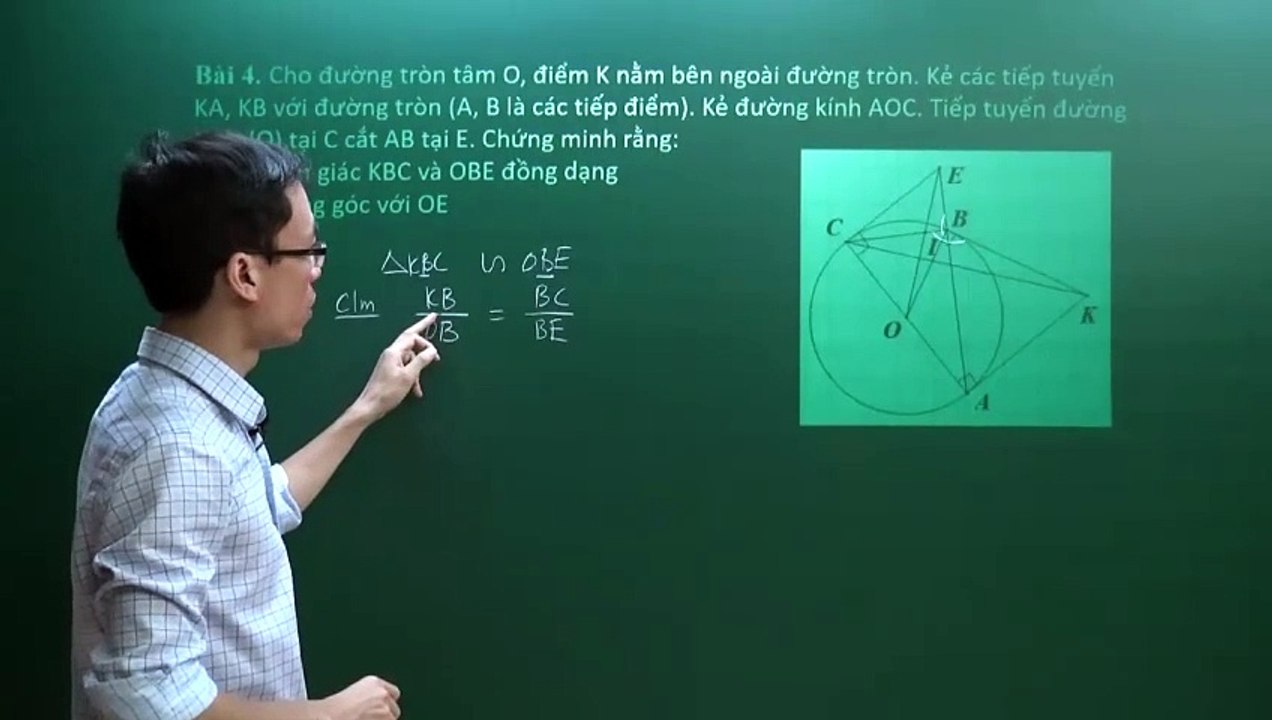 Bài 4. Cho đường tròn tâm O, điểm K nằm bên ngoài đường tròn. Kẻ các tiếp tuyến
KA, KB với đường tròn (A, B là các tiếp điểm). Kẻ đường kính AOC. Tiếp tuyến đường
(O) tại C cắt AB tại E. Chứng minh rằng:
giác KBC và OBE đồng dạng
góc với OE
△KBC ∽ OBE
C/m KB/OB = BC/BE
E
B
C
I
O
K
A